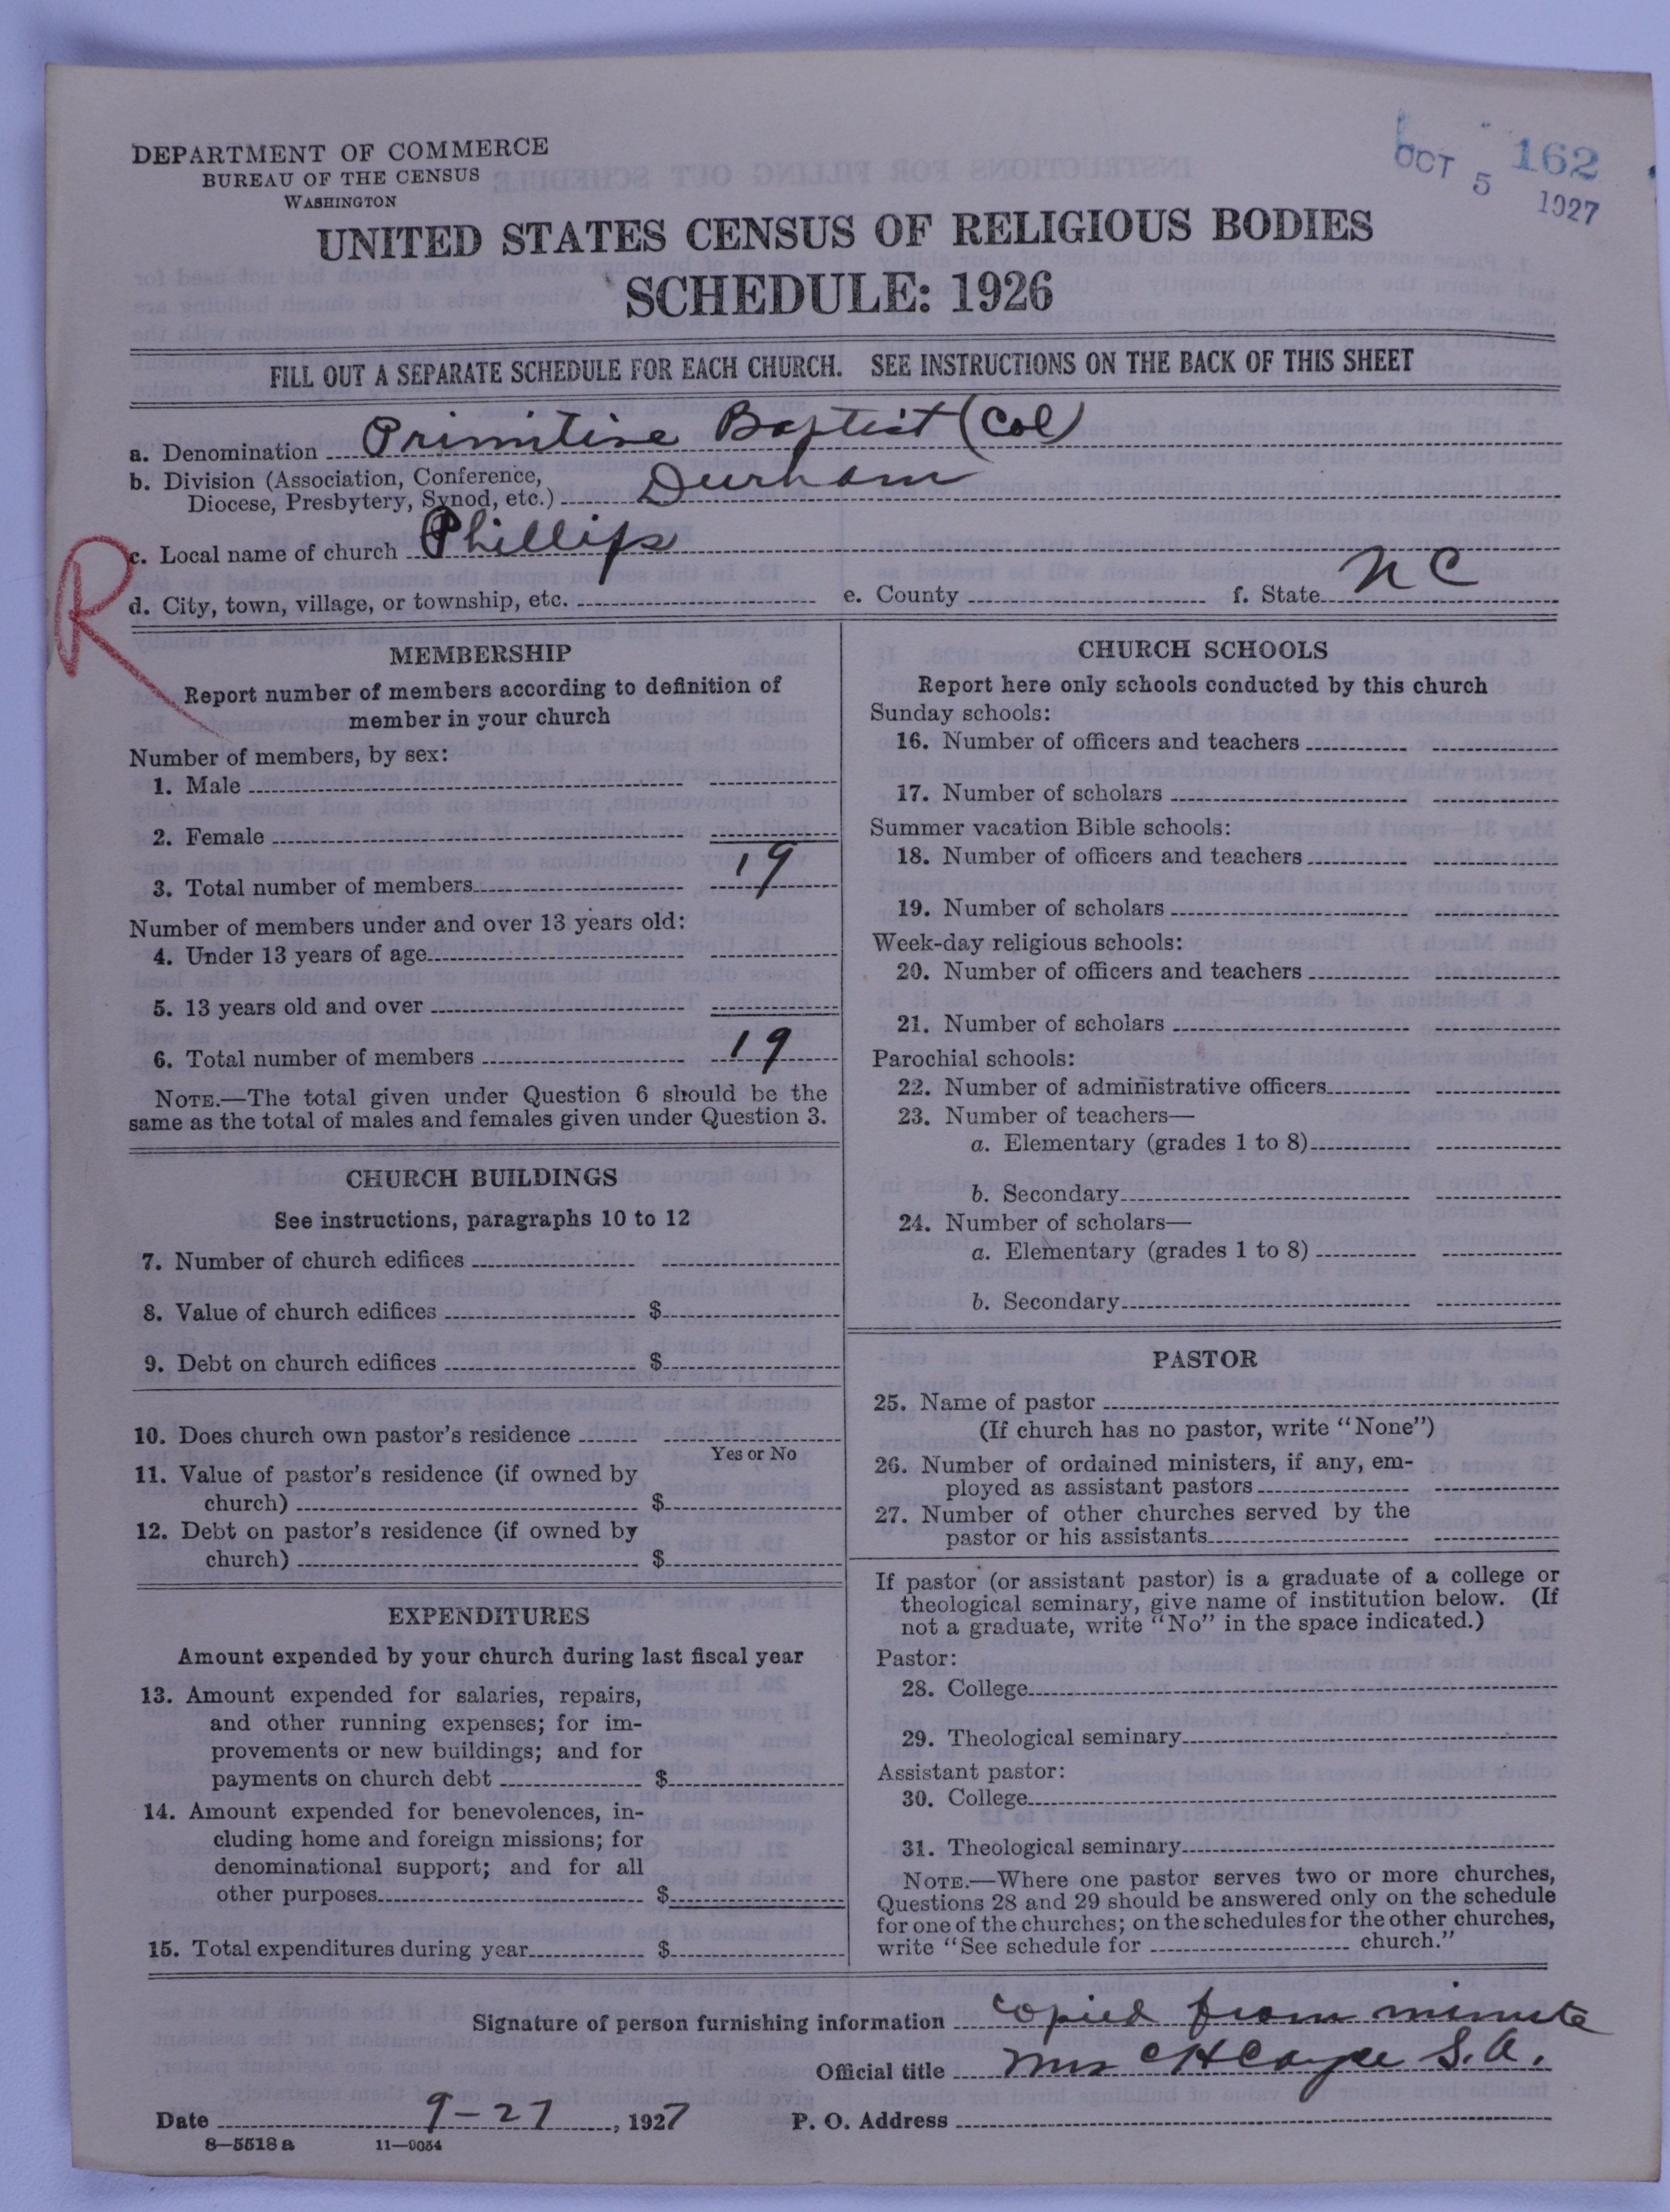 DEPARTMENT OF COMMERCE
BUREAU OF THE CENSUS
WASHINGTON
162
OCT 5 1927
UNITED STATES CENSUS OF RELIGIOUS BODIES
SCHEDULE: 1926
FILL OUT A SEPARATE SCHEDULE FOR EACH CHURCH. SEE INSTRUCTIONS ON THE BACK OF THIS SHEET
a. Denomination Primitive Baptist (Col)
b. Division (Association, Conference,
Diocese, Presbytery, Synod, etc.) Durham
R
c. Local name of church Phillips
d. City, town, village, or township, etc. e. County f. State NC
MEMBERSHIP
Report number of members according to definition of
member in your church
Number of members, by sex:
1. Male
2. Female
3. Total number of members 19
Number of members under and over 13 years old:
4. Under 13 years of age
5. 13 years old and over
6. Total number of members 19
NOTE.—The total given under Question 6 should be the
same as the total of males and females given under Question 3.
CHURCH BUILDINGS
See instructions, paragraphs 10 to 12
7. Number of church edifices
8. Value of church edifices $
9. Debt on church edifices $
10. Does church own pastor's residence
Yes or No
11. Value of pastor's residence (if owned by
church) $
12. Debt on pastor's residence (if owned by
church) $
EXPENDITURES
Amount expended by your church during last fiscal year
13. Amount expended for salaries, repairs,
and other running expenses; for im-
provements or new buildings; and for
payments on church debt $
14. Amount expended for benevolences, in-
cluding home and foreign missions; for
denominational support; and for all
other purposes $
15. Total expenditures during year $
CHURCH SCHOOLS
Report here only schools conducted by this church
Sunday schools:
16. Number of officers and teachers
17. Number of scholars
Summer vacation Bible schools:
18. Number of officers and teachers
19. Number of scholars
Week-day religious schools:
20. Number of officers and teachers
21. Number of scholars
Parochial schools:
22. Number of administrative officers
23. Number of teachers—
a. Elementary (grades 1 to 8)
b. Secondary
24. Number of scholars—
a. Elementary (grades 1 to 8)
b. Secondary
PASTOR
25. Name of pastor
(If church has no pastor, write "None")
26. Number of ordained ministers, if any, em-
ployed as assistant pastors
27. Number of other churches served by the
pastor or his assistants
If pastor (or assistant pastor) is a graduate of a college or
theological seminary, give name of institution below. (If
not a graduate, write "No" in the space indicated.)
Pastor:
28. College
29. Theological seminary
Assistant pastor:
30. College
31. Theological seminary
NOTE.—Where one pastor serves two or more churches,
Questions 28 and 29 should be answered only on the schedule
for one of the churches; on the schedules for the other churches,
write "See schedule for church."
Signature of person furnishing information copied from minute
Official title Mrs C H Cayce S.A.
Date 9-27, 1927 P. O. Address
8—5518 a 11—9034